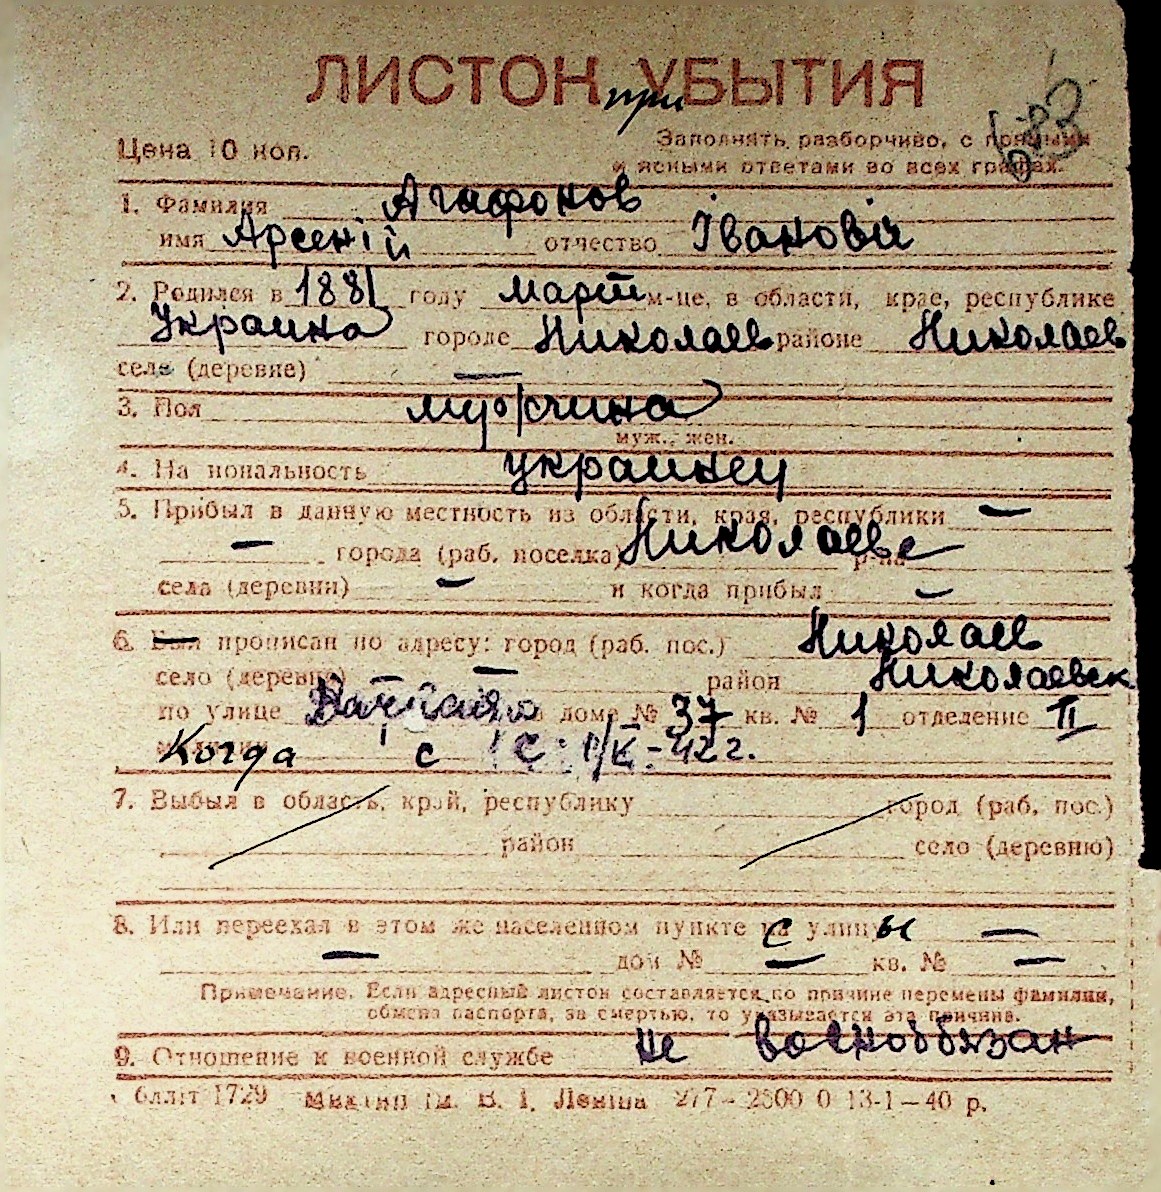 ЛИСТОК УБЫТИЯ
при
Цена 10 коп.
Заполнять разборчиво, с прямыми
и ясными ответами во всех графах.
1. Фамилия Агафонов
имя Арсеній отчество Івановіч
2. Родился в 1881 году март м-це, в области, крае, республике
Украина городе Николаев районе Николаев
села (деревне) —
3. Пол мужчина
муж., жен.
4. На иональность украинец
5. Прибыл в данную местность из области, края, республики —
— города (раб. поселка) Николаеве р-на
села (деревни) — и когда прибыл —
6. Был прописан по адресу: город (раб. пос.) Николаев
село (деревня) — район Николаевск
по улице в доме № 37 кв. № 1 отделение II
Когда с 42 г.
7. Выбыл в область, край, республику город (раб. пос.)
район село (деревню)
8. Или переехал в этом же населенном пункте с улицы —
— дом № — кв. № —
Примечание. Если адресный листок составляется по причине перемены фамилии,
обмена паспорта, за смертью, то указывается эта причина.
9. Отношение к военной службе не воєнообязан
бліт 1729 ім. В. І. Леніна 277—2500 0 13-1—40 р.